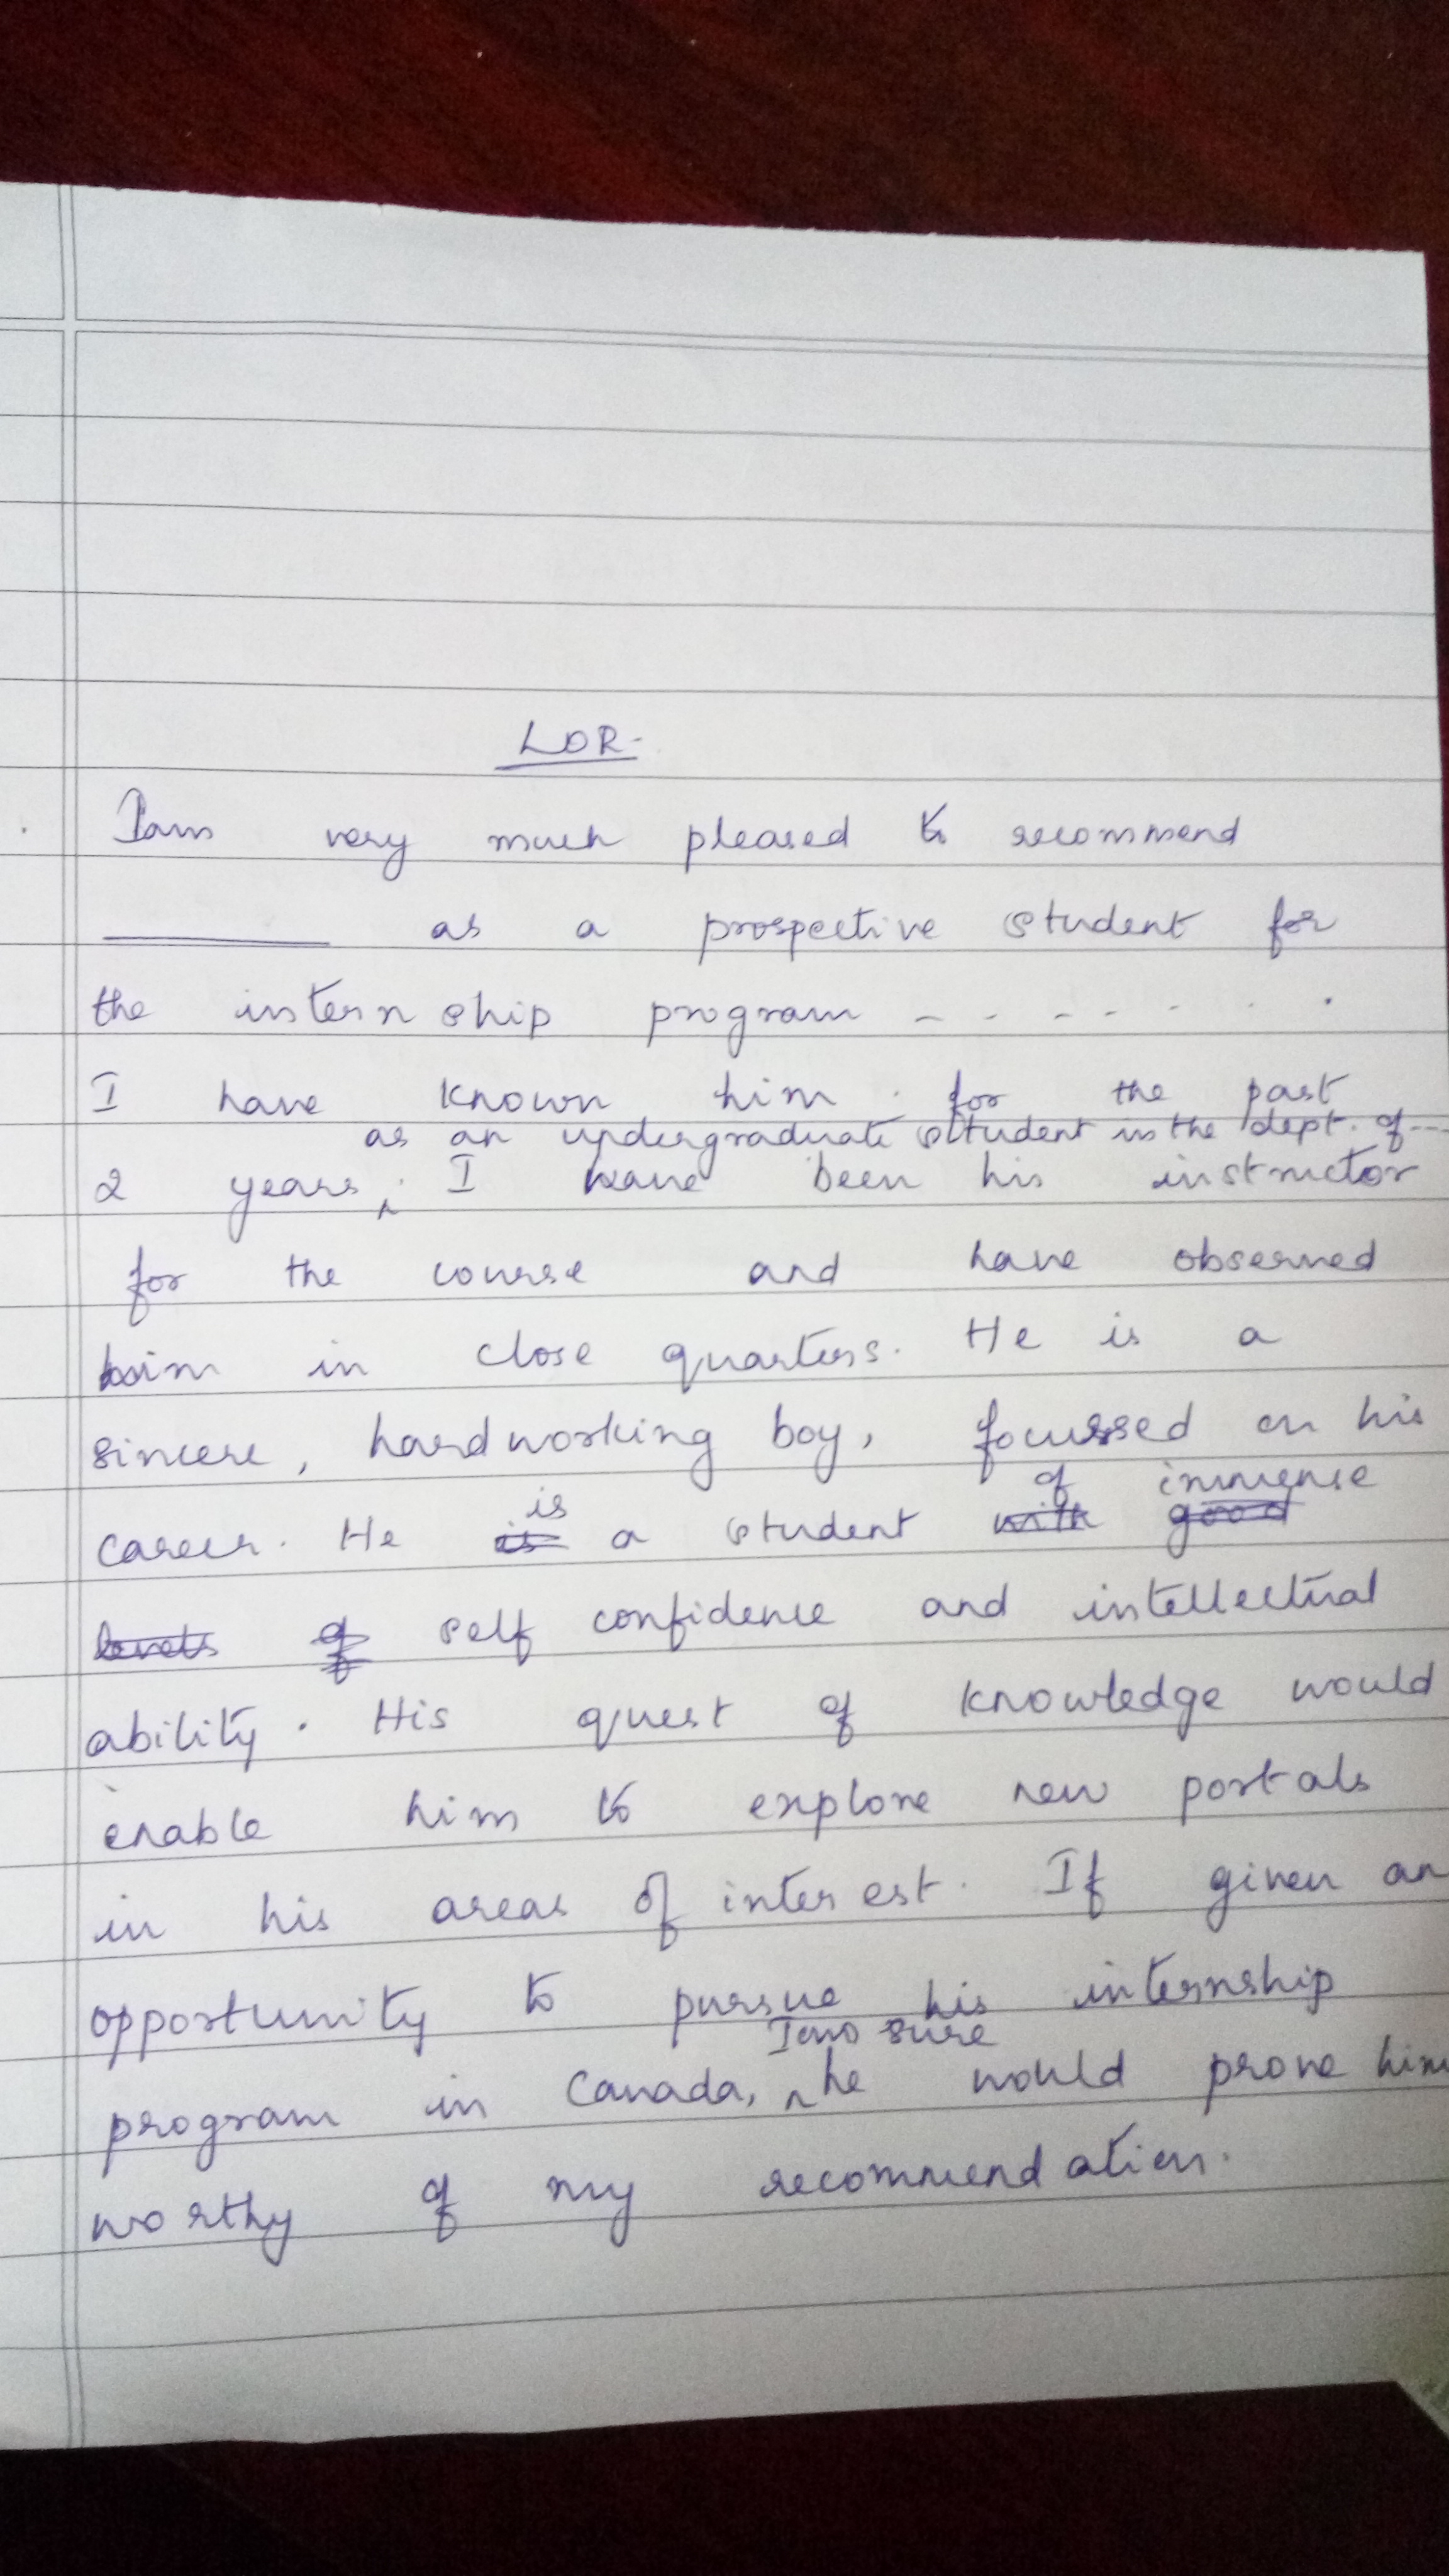 LOR-
I am very much pleased to recommend
________ as a prospective student for
the internship program - - - - - - - .
I have known him for the past
as an undergraduate student in the dept. of ---
2 years. I have been his instructor
for the course and have observed
him in close quarters. He is a
sincere, hardworking boy, focussed on his
of immense
career. He is a student with good
levels of self confidence and intellectual
ability. His quest of knowledge would
enable him to explore new portals
in his areas of interest. If given an
opportunity to pursue his internship
I am sure
program in Canada, he would prove him
worthy of my recommendation.